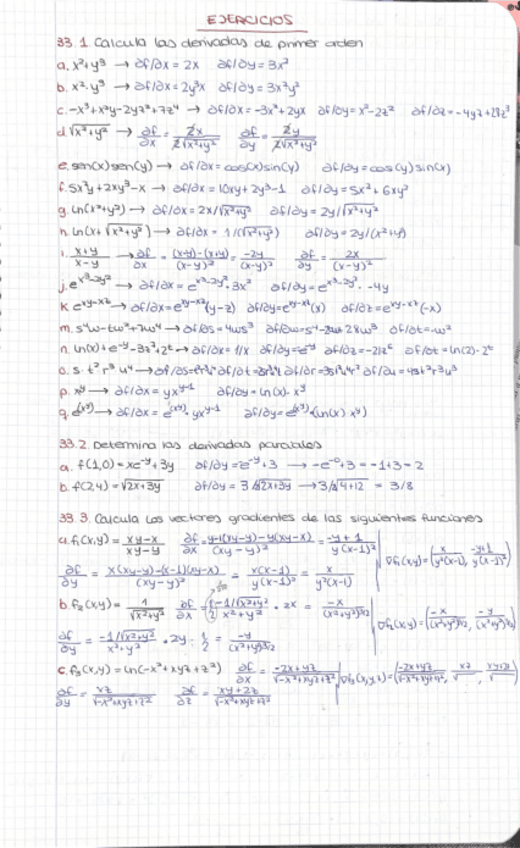 EJERCICIOS
33. 1. Calcula las derivadas de primer orden
a. x²+y³ → ∂f/∂x = 2x ∂f/∂y = 3x²
b. x²·y³ → ∂f/∂x = 2y³x ∂f/∂y = 3x²y²
c. -x³+x²y-2yz²+7z⁴ → ∂f/∂x = -3x²+2yx ∂f/∂y = x²-2z² ∂f/∂z = -4yz+28z³
d. √x²+y² → ∂f/∂x = 2x/2√x²+y² ∂f/∂y = 2y/2√x²+y²
e. sen(x)sen(y) → ∂f/∂x = cos(x)sin(y) ∂f/∂y = cos(y)sin(x)
f. 5x²y+2xy³-x → ∂f/∂x = 10xy+2y³-1 ∂f/∂y = 5x²+6xy²
g. ln(x²+y²) → ∂f/∂x = 2x/√x²+y² ∂f/∂y = 2y/√x²+y²
h. ln(x+√x²+y²) → ∂f/∂x = 1/(√x²+y²) ∂f/∂y = 2y/(x²+y)
i. x+y/x-y → ∂f/∂x = (x-y)-(x+y)/(x-y)² = -2y/(x-y)² ∂f/∂y = 2x/(x-y)²
j. e^x³-2y² → ∂f/∂x = e^x³-2y²·3x² ∂f/∂y = e^x³-2y²·-4y
k e^xy-xz → ∂f/∂x = e^xy-xz(y-z) ∂f/∂y = e^xy-xz(x) ∂f/∂z = e^xy-xz(-x)
m. s⁴w-tw²+7w⁴ → ∂f/∂s = 4ws³ ∂f/∂w = s⁴-2wt 28w³ ∂f/∂t = -w²
n. ln(x)+e^-y-3z⁷+2^t → ∂f/∂x = 1/x ∂f/∂y = -e^-y ∂f/∂z = -21z⁶ ∂f/∂t = ln(2)·2^t
o. s·t²r³u⁴ → ∂f/∂s = t²r³u⁴ ∂f/∂t = ∂f/∂r = ∂f/∂u = 4st²r³u³
p. x^y → ∂f/∂x = yx^y-1 ∂f/∂y = ln(x)·x^y
q. e^(x^y) → ∂f/∂x = e^(x^y)·yx^y-1 ∂f/∂y = e^(x^y)·(ln(x)·x^y)
33.2. Determina las derivadas parciales
a. f(1,0) = xe^-y+3y ∂f/∂y = e^-y+3 → -e^-0+3 = -1+3 = 2
b. f(2,4) = √2x+3y ∂f/∂y = 3/2√2x+3y → 3/2√4+12 = 3/8
33. 3. Calcula los vectores gradientes de las siguientes funciones
a. f₁(x,y) = xy-x/xy-y ∂f/∂x = y-1(xy-y)-y(xy-x)/(xy-y)² = -y+1/y(x-1)² ∇f₁(x,y) = (x/y²(x-1), -y+1/y(x-1)²)
∂f/∂y = x(xy-y)-(x-1)(xy-x)/(xy-y)² = x(x-1)/y(x-1)² = x/y²(x-1)
b. f₂(x,y) = 1/√x²+y² ∂f/∂x = -1/√x²+y²/x²+y² · 2x = -x/(x²+y²)3/2 ∇f₂(x,y) = (-x/(x²+y²)3/2, -y/(x²+y²)3/2)
∂f/∂y = -1/√x²+y²/x²+y² · 2y · 1/2 = -y/(x²+y²)3/2
c. f₃(x,y) = ln(-x²+xyz+z²) ∂f/∂x = -2x+yz/√-x²+xyz+z² ∇f₃(x,y,z) = (-2x+yz/√-x²+xyz+z², xz/√, xy+2z/√)
∂f/∂y = xz/√-x²+xyz+z² ∂f/∂z = xy+2z/√-x²+xyz+z²